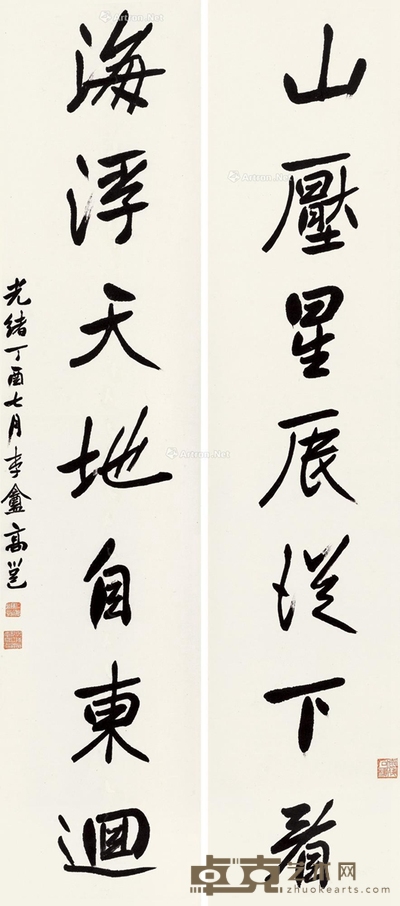 山壓星辰從下看
海浮天地自東迴
光緒丁酉七月李盦高邕
Artron.Net
卓克艺术网
zhuokearts.com